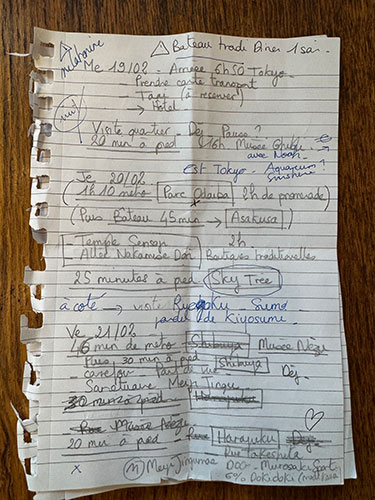 ⚠ Bateau tradi Dîner 1 soir
Me 19/02 - Arrivée 6h50 Tokyo -
Prendre carte transport
Taxi (à réserver)
→ Hotel
Visite quartier - Déj - Pause ?
20 min à pied 16h Musée Ghibli →
avec Noah
Est Tokyo - Aquarium ?
Sunshine
Je 20/02
(1h10 métro Parc Odaiba 2h de promenade)
(Puis Bateau 45 min → Asakusa)
Temple Sensoji 2h
Allée Nakamise Dori Boutiques traditionnelles
25 minutes à pied Sky Tree
à côté → visite Ryogoku Sumo
jardin de Kiyosumi
Ve 21/02
46 min de métro Shibuya Musée Nezu
Puis 30 min à pied Shibuya
carrefour Point de vue Déj -
Sanctuaire Meiji Jingu
30 min à pied Harajuku
Musée Nezu
20 min à pied - Harajuku
Rue Takeshita
x Meiji Jingumae Murasaki Sport